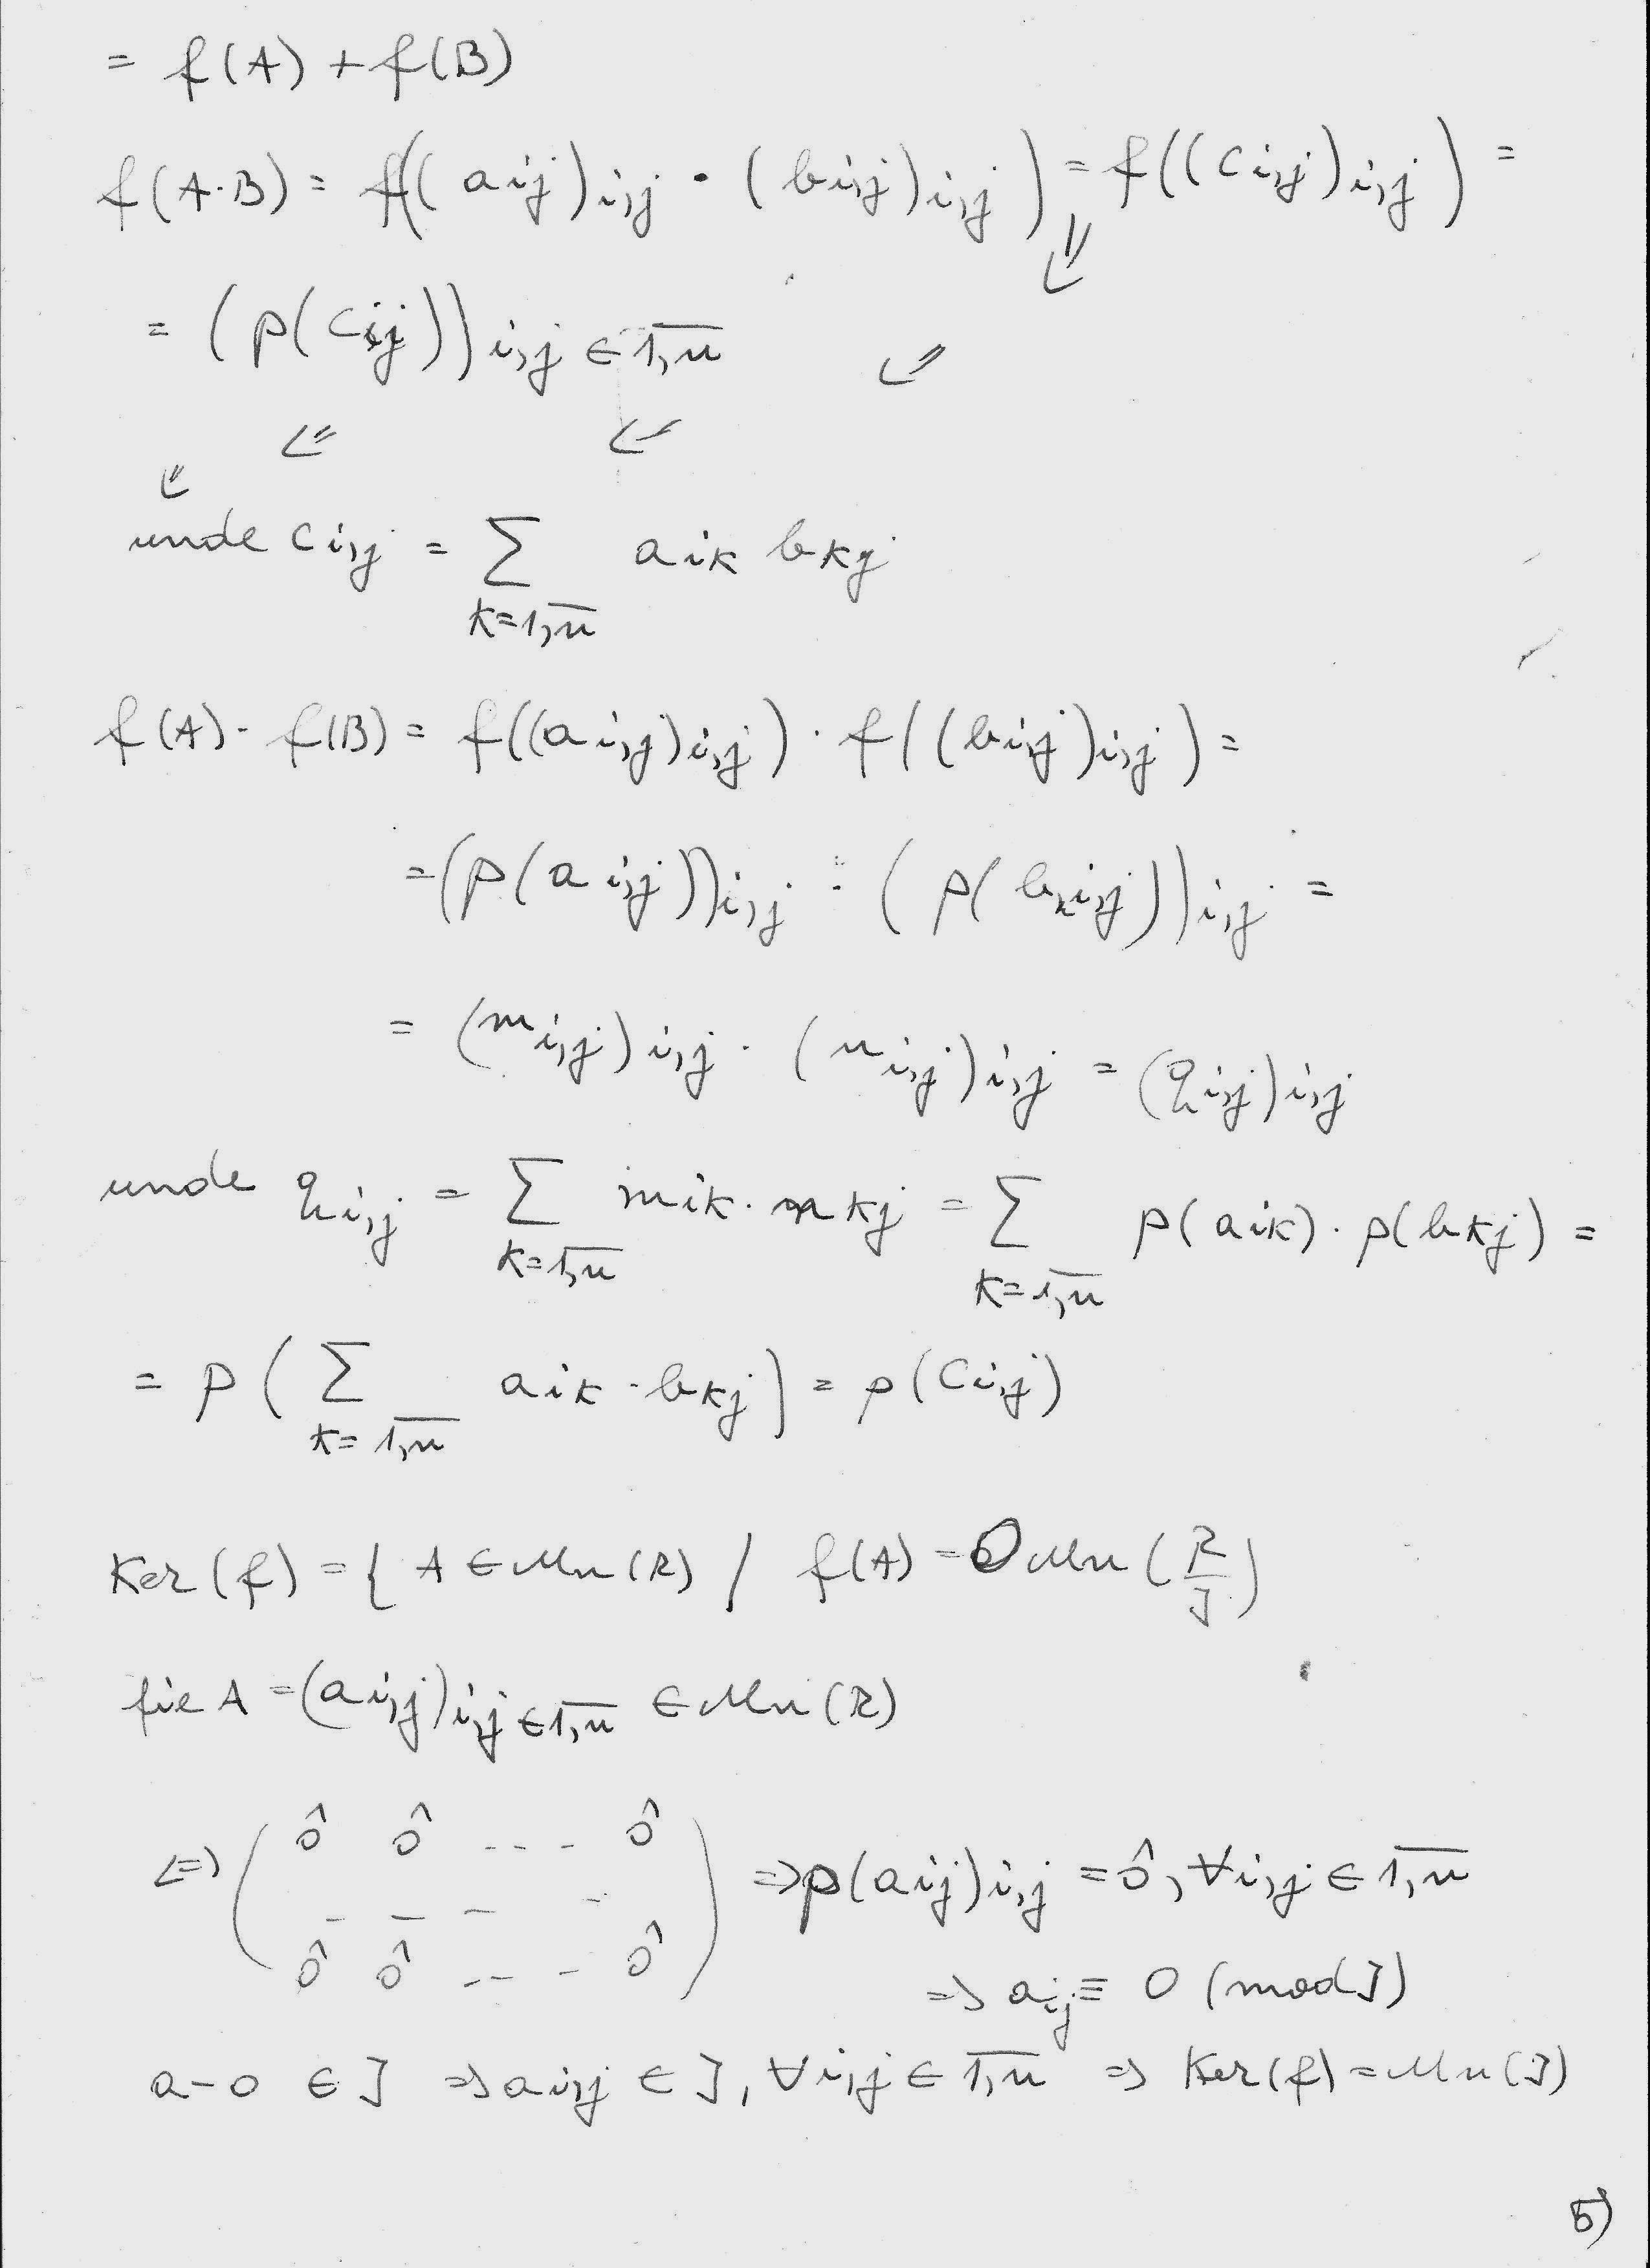 = f(A) + f(B)
f(A·B) = f((aij)i,j · (bi,j)i,j) = f((ci,j)i,j) =
= (p(cij))i,j ∈ 1,n
unde ci,j = ∑ aik bkj
k=1,n
f(A)· f(B) = f((ai,j)i,j) · f((bi,j)i,j) =
= (p(ai,j))i,j · (p(bi,j))i,j =
= (mi,j)i,j · (ni,j)i,j = (qi,j)i,j
unde qi,j = ∑ mik · nkj = ∑ p(aik) · p(bkj) =
k=1,n k=1,n
= p(∑ aik · bkj) = p(ci,j)
k=1,n
Ker(f) = { A ∈ Mn(R) / f(A) = O Mn(R/J)
fie A = (ai,j)i,j ∈ 1,n ∈ Mn(R)
<=> ( ô ô --- ô
- - - -
ô ô --- ô ) => p(aij)i,j = ô, ∀i,j ∈ 1,n
=> aij ≡ 0 (mod J)
a-0 ∈ J => ai,j ∈ J, ∀i,j ∈ 1,n => Ker(f) = Mn(J)
5)